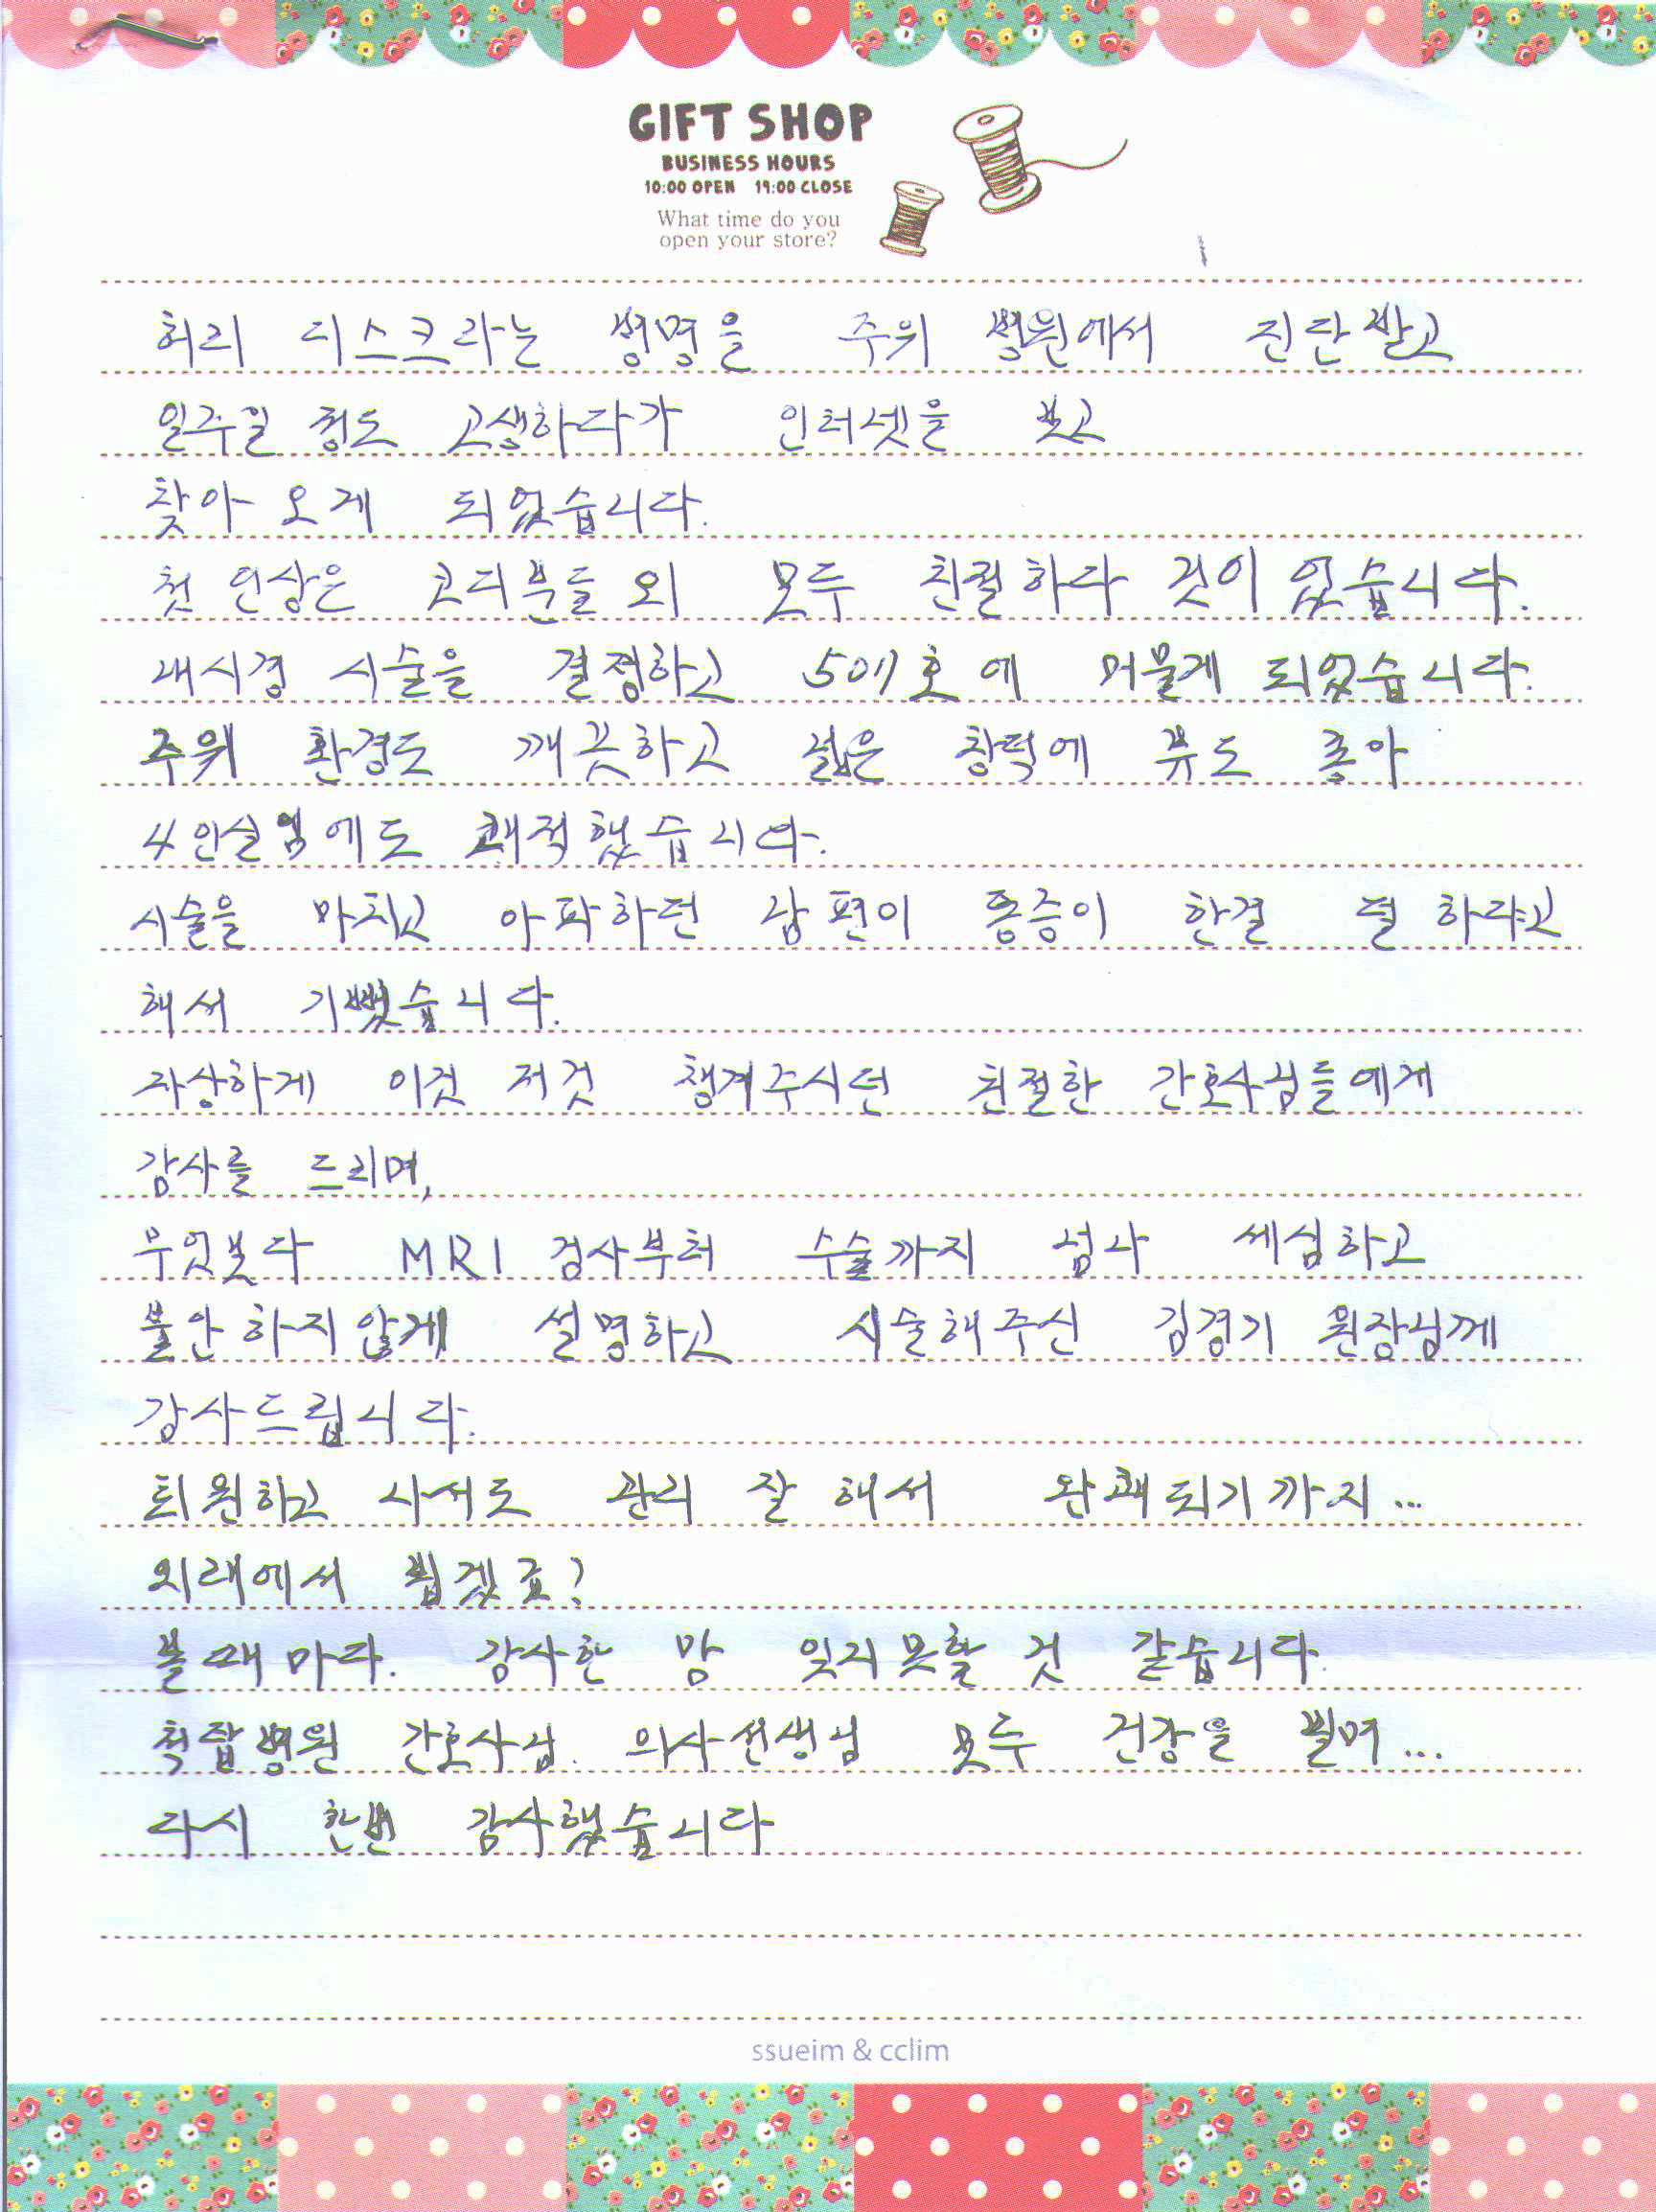 GIFT SHOP
BUSINESS HOURS
10:00 OPEN 19:00 CLOSE
What time do you
open your store?
허리 디스크라는 병명을 주위 병원에서 진단받고
일주일 정도 고생하다가 인터넷을 보고
찾아 오게 되었습니다.
첫 인상은 코디분들 외 모두 친절하다 것이 었습니다.
내시경 시술을 결정하고 501호에 머물게 되었습니다.
주위 환경도 깨끗하고 넓은 창턱에 뷰도 좋아
4인실임에도 쾌적했습니다.
시술을 마치고 아파하던 남편이 통증이 한결 덜 하다고
해서 기뻤습니다.
자상하게 이것 저것 챙겨주시던 친절한 간호사님들에게
감사를 드리며,
무엇보다 MRI 검사부터 수술까지 넘나 세심하고
불안하지않게 설명하고 시술해주신 김경기 원장님께
감사드립니다.
퇴원하고 나서도 관리 잘 해서 완쾌되기 까지...
외래에서 뵙겠죠?
볼때마다. 감사한 맘 잊지못할 것 같습니다.
척탑병원 간호사님. 의사선생님 모두 건강을 빌며...
다시 한번 감사했습니다
ssueim & cclim